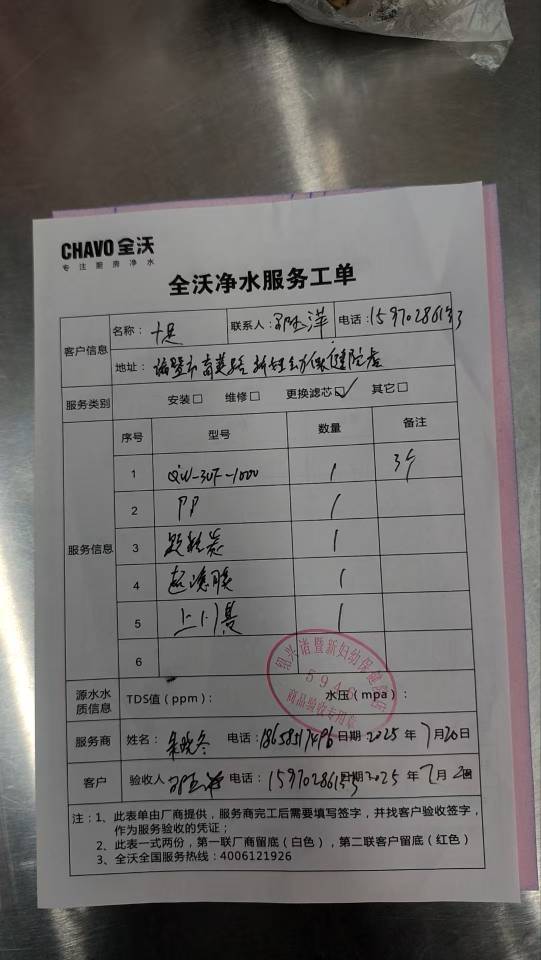 CHAVO 全沃
专注厨房净水
全沃净水服务工单
客户信息
名称：十足 联系人： 萍 电话：15970286133
地址：诸暨市 路 新妇幼保健院店
服务类别 安装□ 维修□ 更换滤芯☑ 其它□
服务信息
序号 型号 数量 备注
1 QW-3UF-1000 1 3个
2 PP 1
3 颗粒炭 1
4 超滤膜 1
5 上门费 1
6
源水水质信息 TDS值（ppm）： 水压（mpa）：
绍兴诸暨新妇幼保健院店
594
商品验收专用章
服务商 姓名： 冬 电话：186583 96 日期 2025年7月20日
客户 验收人 电话：15970286133 日期 2025年7月2
注：1、此表单由厂商提供，服务商完工后需要填写签字，并找客户验收签字，
作为服务验收的凭证；
2、此表一式两份，第一联厂商留底（白色），第二联客户留底（红色）
3、全沃全国服务热线：4006121926